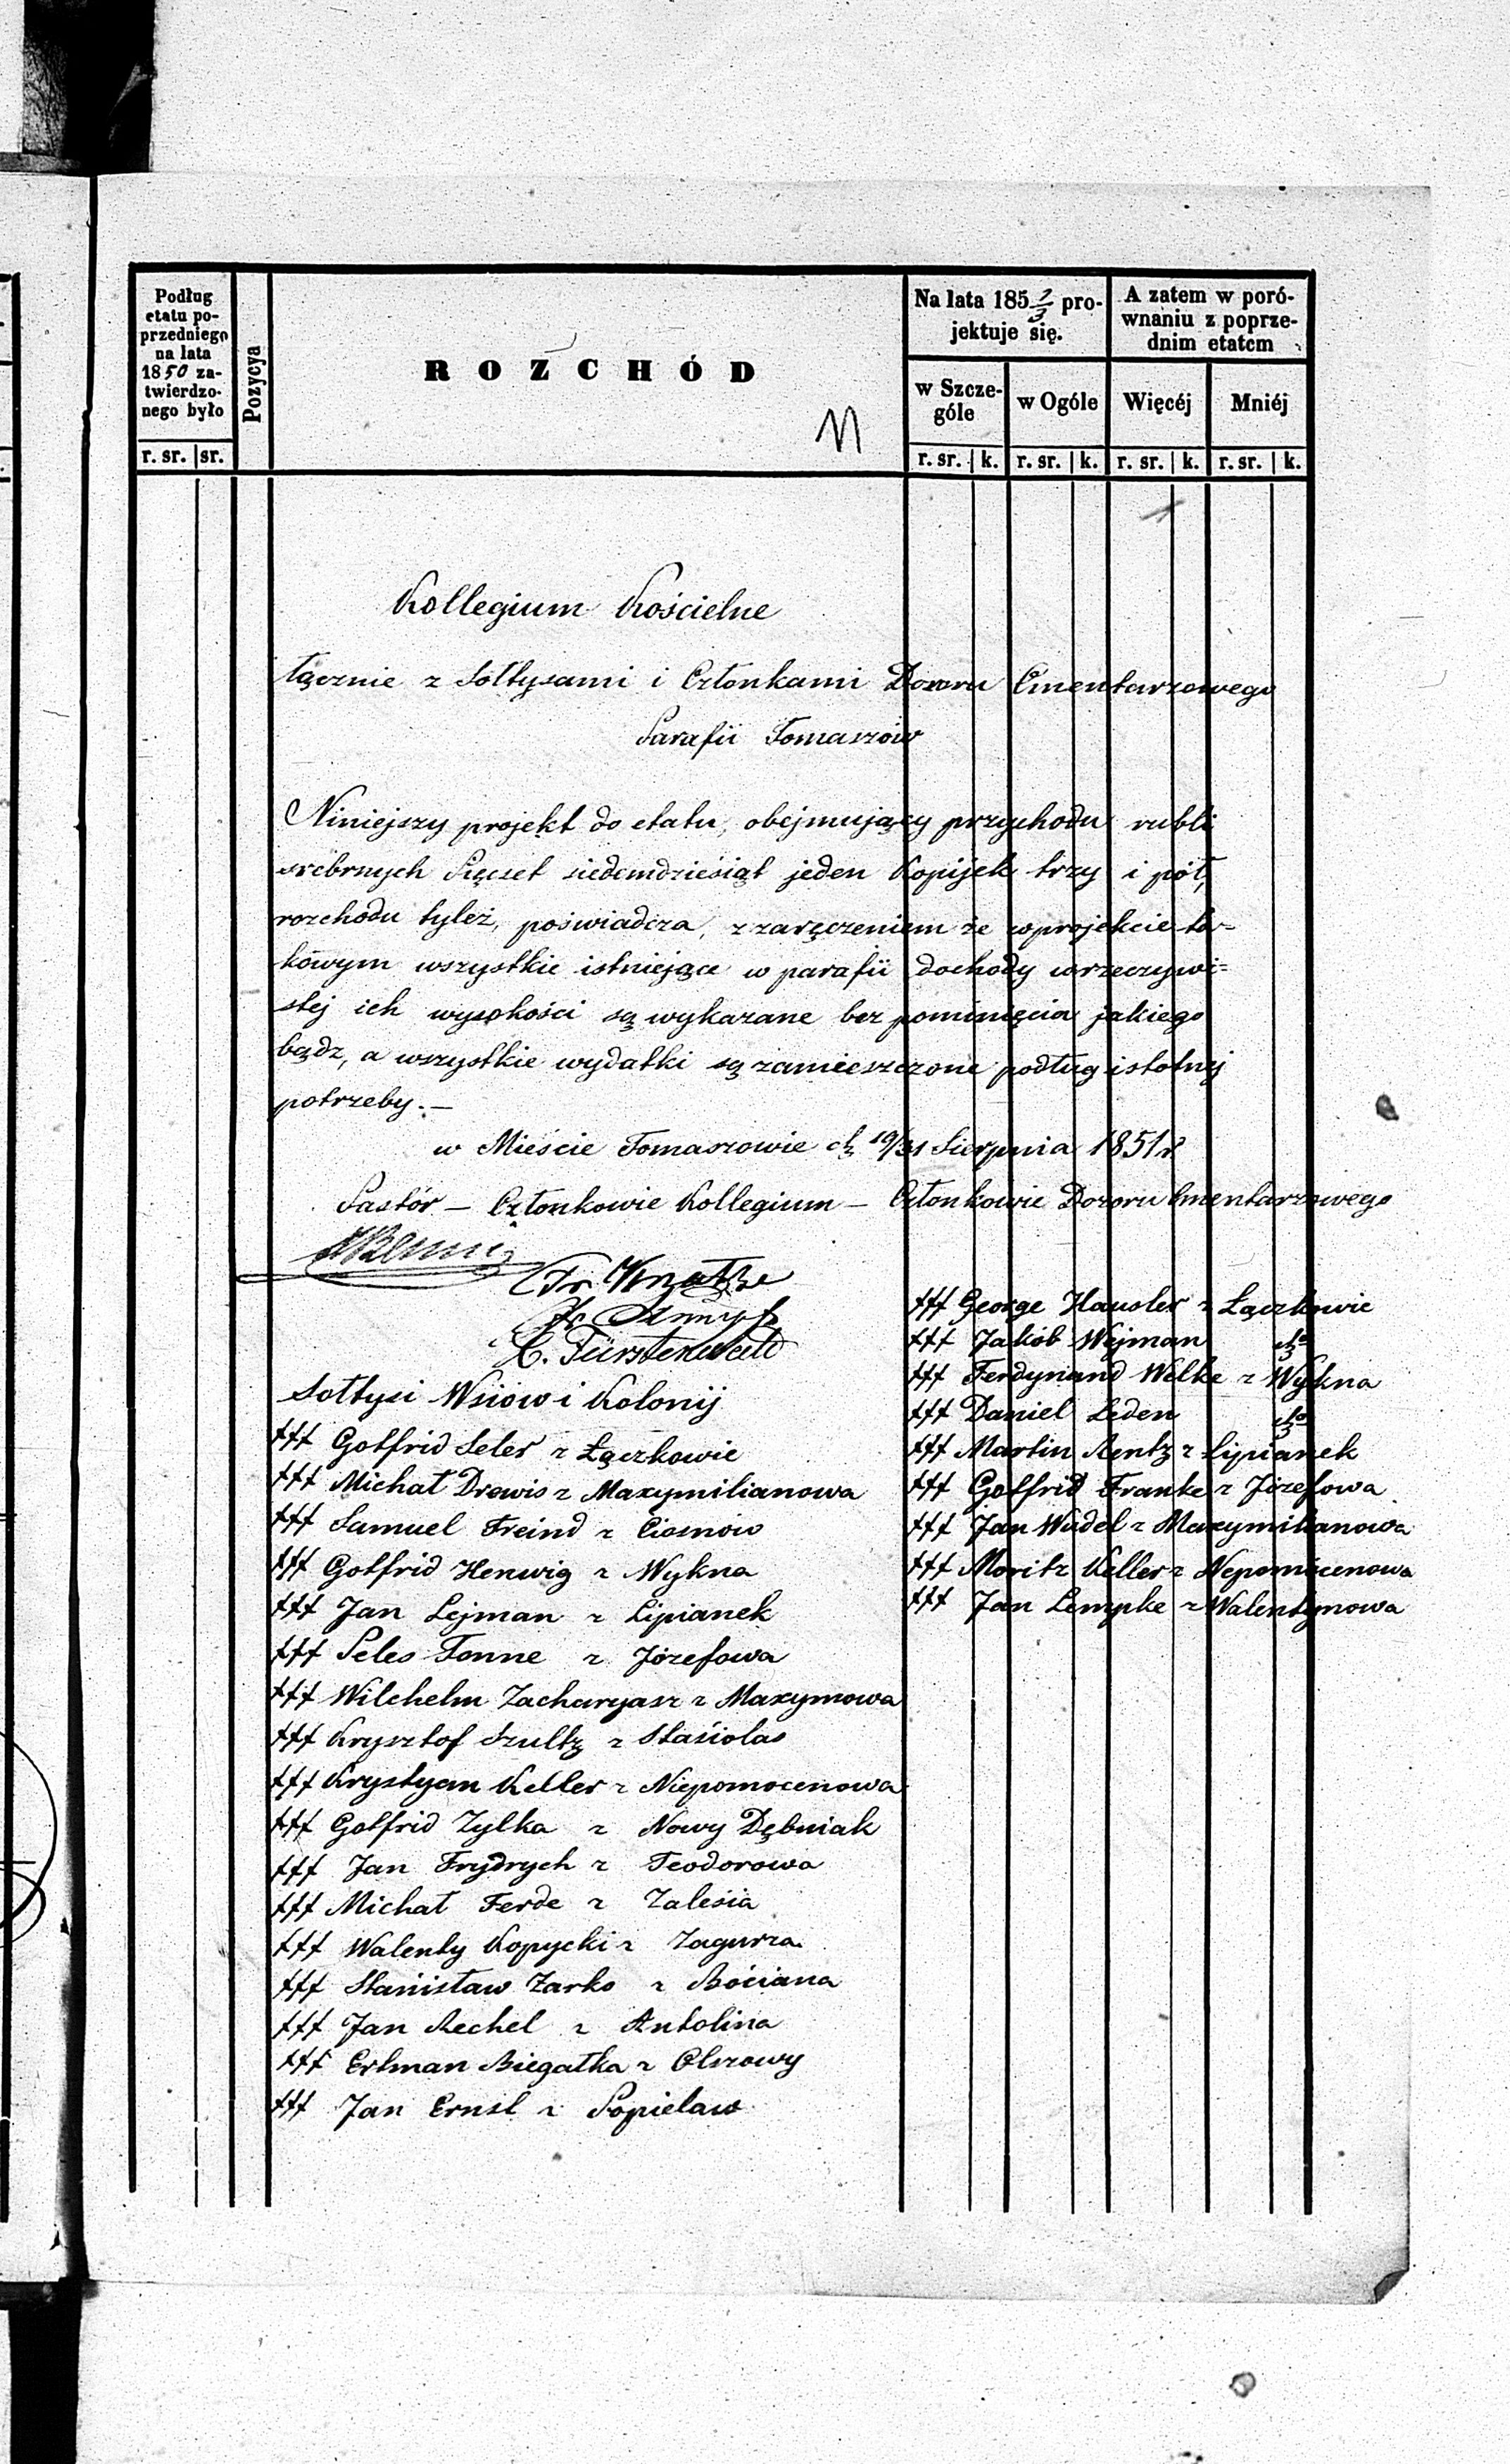 Podług
etatu po-
przedniego
na lata
1850 za-
twierdzo-
nego było
r. sr. sr.
Pozycya
ROZCHÓD
Na lata 185 1/3 pro-
jektuje się.
w Szcze-
góle
w Ogóle
r. sr. k. r. sr. k.
A zatem w poró-
wnaniu z poprze-
dnim etatem
Więcéj Mniéj
r. sr. k. r. sr. k.
Kollegium Kościelne
łącznie z Sołtysami i Członkami Dozoru Cmentarzowego
Parafii Tomaszów
Niniejszy projekt do etatu, obejmujący przychodu rubli
srebrnych Pięcset siedemdziesiąt jeden Kopijek trzy i pół,
rozchodu tyleż, poświadcza, z zaręczeniem że w projekcie ta=
kowym wszystkie istniejące w parafii dochody w rzeczywi=
stej ich wysokości są wykazane bez pominięcia jakiego
bądz, a wszystkie wydatki są zamieszczone podług istotnej
potrzeby.—
w Mieście Tomaszowie d. 19/31 Sierpnia 1851 r
Pastór — Członkowie Kollegium — Członkowie Dozoru Cmentarzowego
C. Fürstenwald
Sołtysi Wsiow i Kolonij
+++ Gotfrid Seler z Łączkowic
+++ Michał Drewis z Maxymilianowa
+++ Samuel Freind z Ciosnow
+++ Gotfrid Henwig z Wykna
+++ Jan Lejman z Lipianek
+++ Peles Tonne z Józefowa
+++ Wilchelm Zacharyasz z Maxymowa
+++ Krysztof Szultz z Stasiolas
+++ Krystyan Keller z Niepomocenowa
+++ Gotfrid Zylka z Nowy Dębniak
+++ Jan Frydrych z Teodorowa
+++ Michał Ferde z Zalesia
+++ Walenty Kopycki z Zagurza
+++ Stanisław Zarko z Bóciana
+++ Jan Rechel z Antolina
+++ Ertman Biegatka z Olszowy
+++ Jan Ernst z Popielaw
+++ George Hausler z Łączkowic
+++ Jakób Wejman dto
+++ Ferdynand Welke z Wykna
+++ Daniel Leden dto
+++ Martin Rentz z Lipianek
+++ Gotfrid Franke z Józefowa
+++ Jan Wudel z Maxymilianowa
+++ Moritz Keller z Nepomocenowa
+++ Jan Lempke z Walentynowa